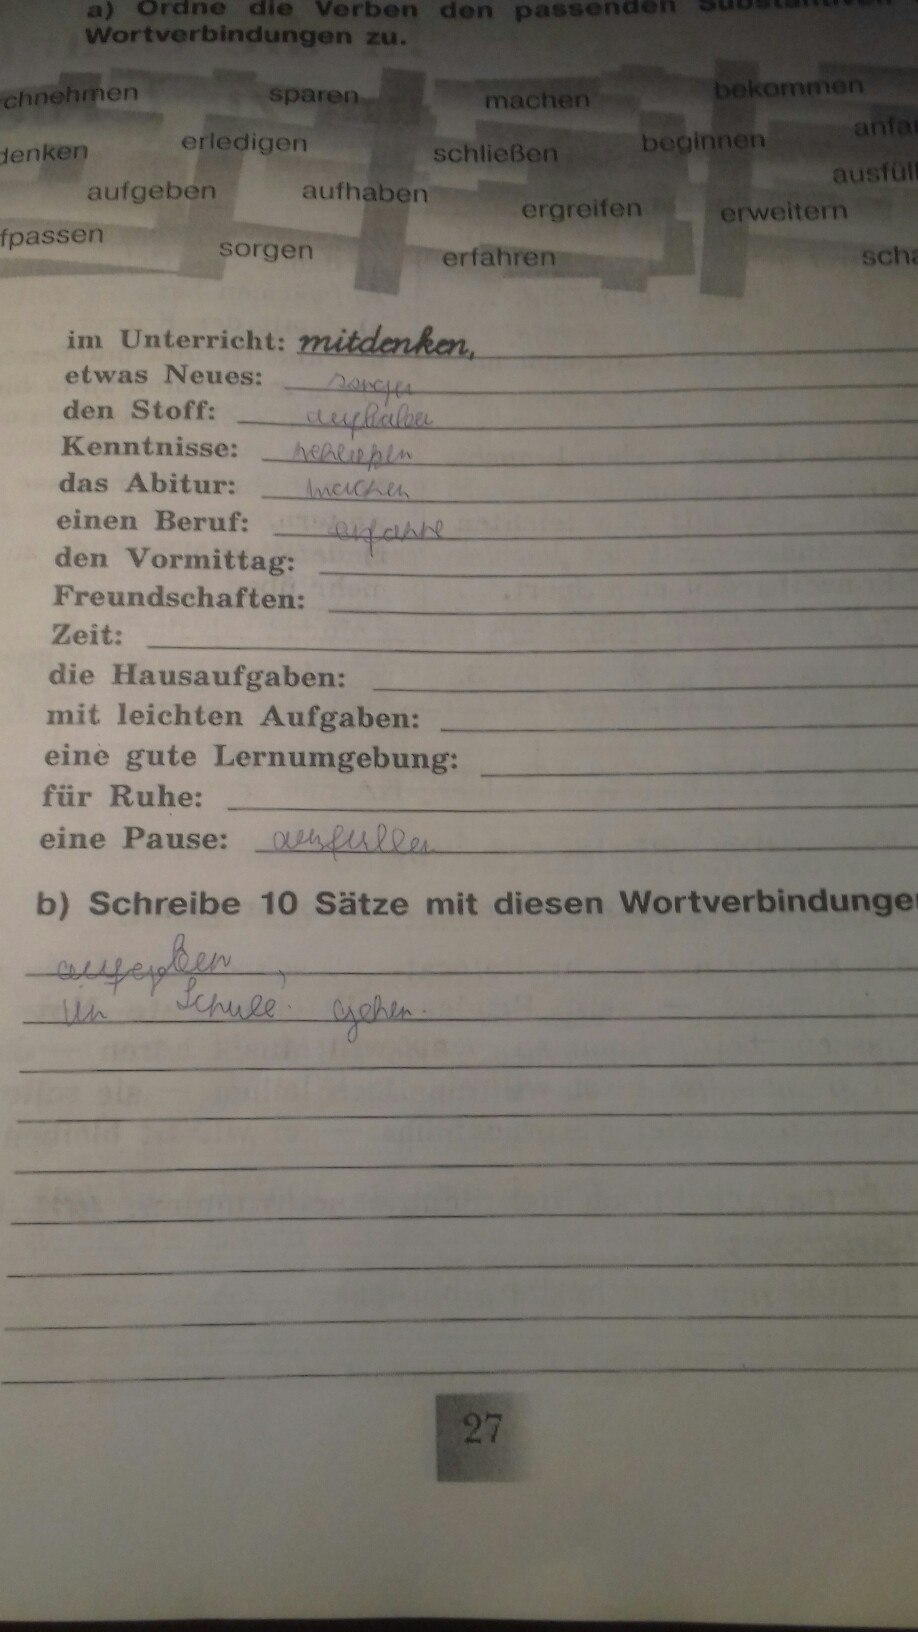 a) Ordne die Verben den passenden Substantiven
Wortverbindungen zu.
chnehmen sparen machen bekommen
denken erledigen schließen beginnen anfa
aufgeben aufhaben ergreifen erweitern ausfüll
fpassen sorgen erfahren scha
im Unterricht: mitdenken,
etwas Neues: sorgen
den Stoff: aufhaben
Kenntnisse: schließen
das Abitur: machen
einen Beruf: erfahre
den Vormittag:
Freundschaften:
Zeit:
die Hausaufgaben:
mit leichten Aufgaben:
eine gute Lernumgebung:
für Ruhe:
eine Pause: ausfullen
b) Schreibe 10 Sätze mit diesen Wortverbindungen
aufgeben,
in Schule. gehen.
27